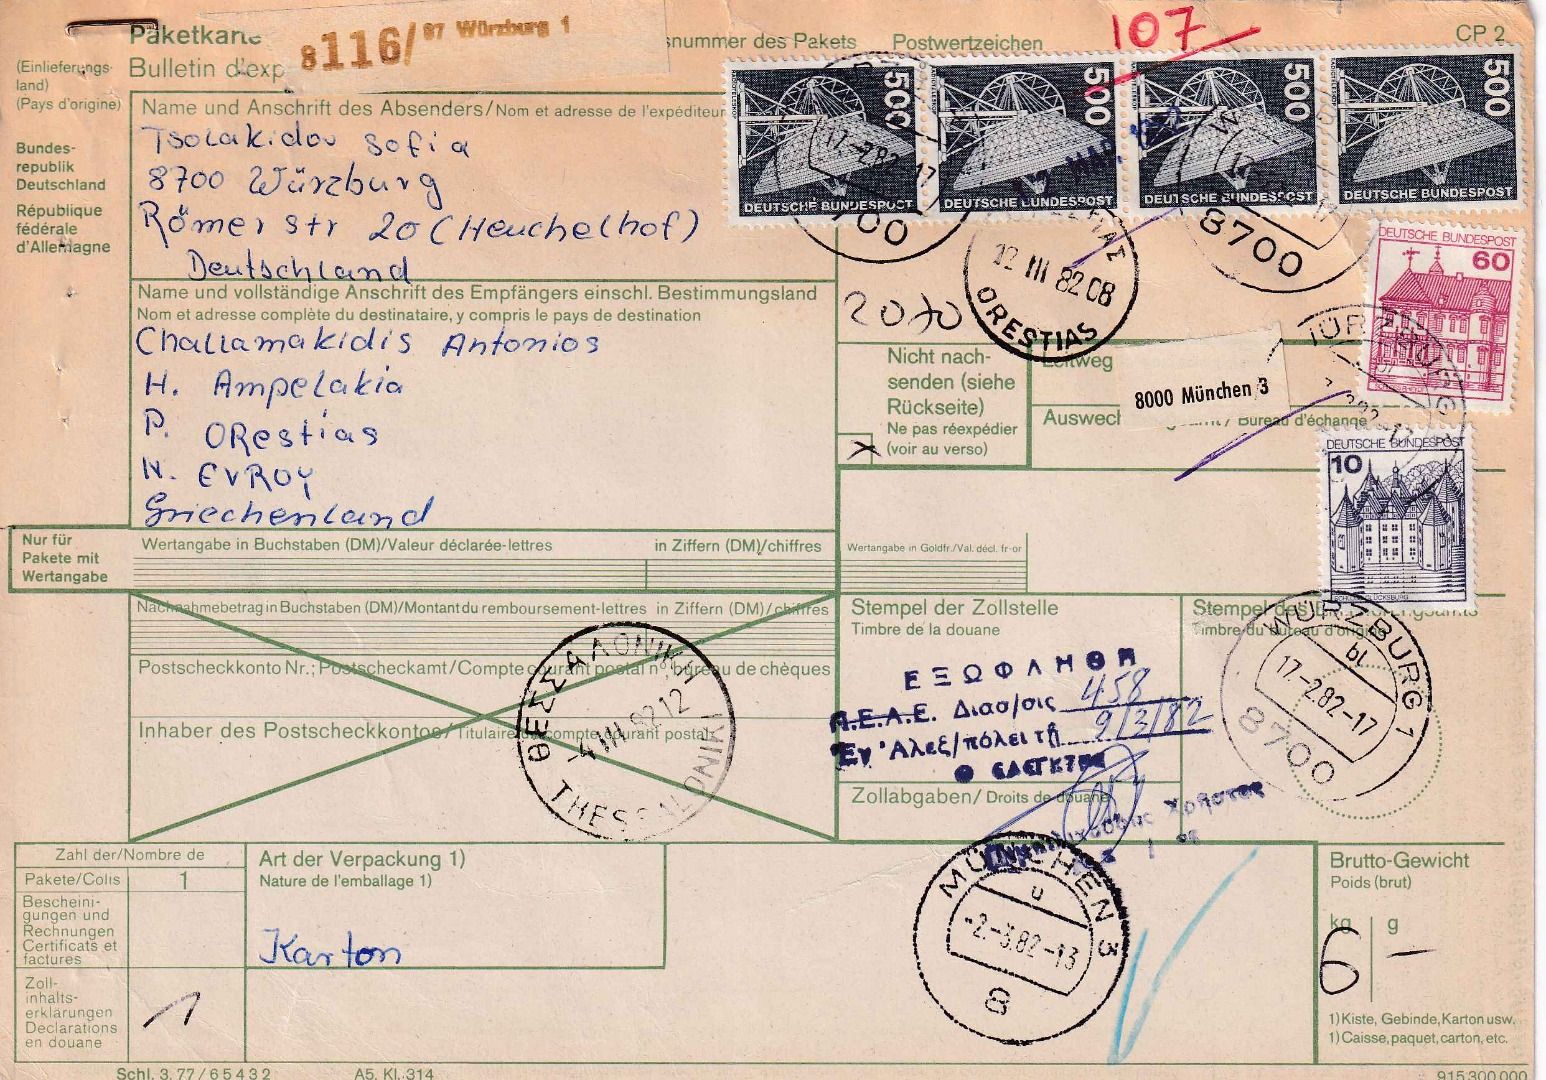 Paketkarte
Bulletin d'exp
8116/ 87 Würzburg 1
snummer des Pakets
Postwertzeichen
107
CP 2
(Einlieferungs-
land)
(Pays d'origine)
Bundes-
republik
Deutschland
République
fédérale
d'Allemagne
Name und Anschrift des Absenders/Nom et adresse de l'expéditeur
Tsolakidou Sofia
8700 Würzburg
Römer str 20 (Heuchelhof)
Deutschland
500
DEUTSCHE BUNDESPOST
500
DEUTSCHE BUNDESPOST
500
DEUTSCHE BUNDESPOST
500
DEUTSCHE BUNDESPOST
17.-2.82-17
8700
8700
12 III 82 08
ORESTIAS
DEUTSCHE BUNDESPOST
60
DEUTSCHE BUNDESPOST
10
Name und vollständige Anschrift des Empfängers einschl. Bestimmungsland
Nom et adresse complète du destinataire, y compris le pays de destination
Challamakidis Antonios
H. Ampelakia
P. ORestias
N. EVROY
Griechenland
2070
Nicht nach-
senden (siehe
Rückseite)
Ne pas réexpédier
(voir au verso)
Leitweg
8000 München 3
Auswech
/ Bureau d'échange
Nur für
Pakete mit
Wertangabe
Wertangabe in Buchstaben (DM)/Valeur déclarée-lettres
in Ziffern (DM)/chiffres
Wertangabe in Goldfr./Val. décl. fr-or
Nachnahmebetrag in Buchstaben (DM)/Montant du remboursement-lettres
in Ziffern (DM)/chiffres
Postscheckkonto Nr.; Postscheckamt/Compte courant postal n°, bureau de chèques
Inhaber des Postscheckkontos/Titulaire du compte courant postal
ΘΕΣΣΑΛΟΝΙΚΗ
-4 III 82 12
THESSALONIKI
Stempel der Zollstelle
Timbre de la douane
ΕΞΩΦΛΗΘΗ
Α.Ε.Α.Ε. Διασ/σις 458
Ἐν Ἀλεξ/πόλει τῇ 9/3/82
Zollabgaben/Droits de douane
Stempel des
Timbre du bureau d'origine
WÜRZBURG 1
bl
17.-2.82-17
8700
MÜNCHEN 3
u
-2.-3.82-13
8
Zahl der/Nombre de
Pakete/Colis
1
Bescheini-
gungen und
Rechnungen
Certificats et
factures
Zoll-
inhalts-
erklärungen
Déclarations
en douane
1
Art der Verpackung 1)
Nature de l'emballage 1)
Karton
Brutto-Gewicht
Poids (brut)
kg
g
6 –
1) Kiste, Gebinde, Karton usw.
1) Caisse, paquet, carton, etc.
Schl. 3. 77 / 6 5 4 3 2
A5, Kl. 314
915 300 000